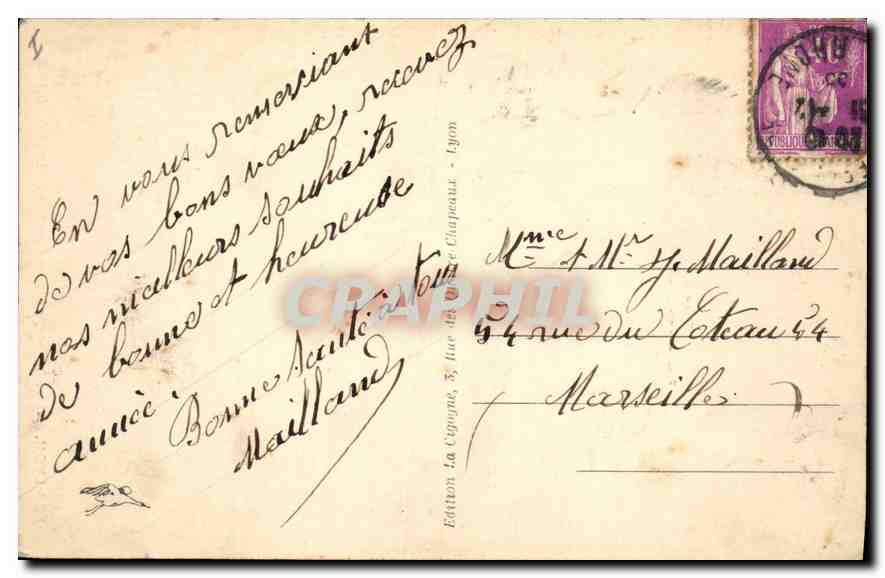 I
En vous remerciant
de vos bons vœux, recevez
nos meilleurs souhaits
de bonne et heureuse
année.
Bonne Santé à tous
Maillard
Edition La Cigogne, 5, Rue des Quatre Chapeaux - Lyon
Mme & Mr Maillard
54 rue du Coteau 54
Marseille
CRAPHIL
RHONE